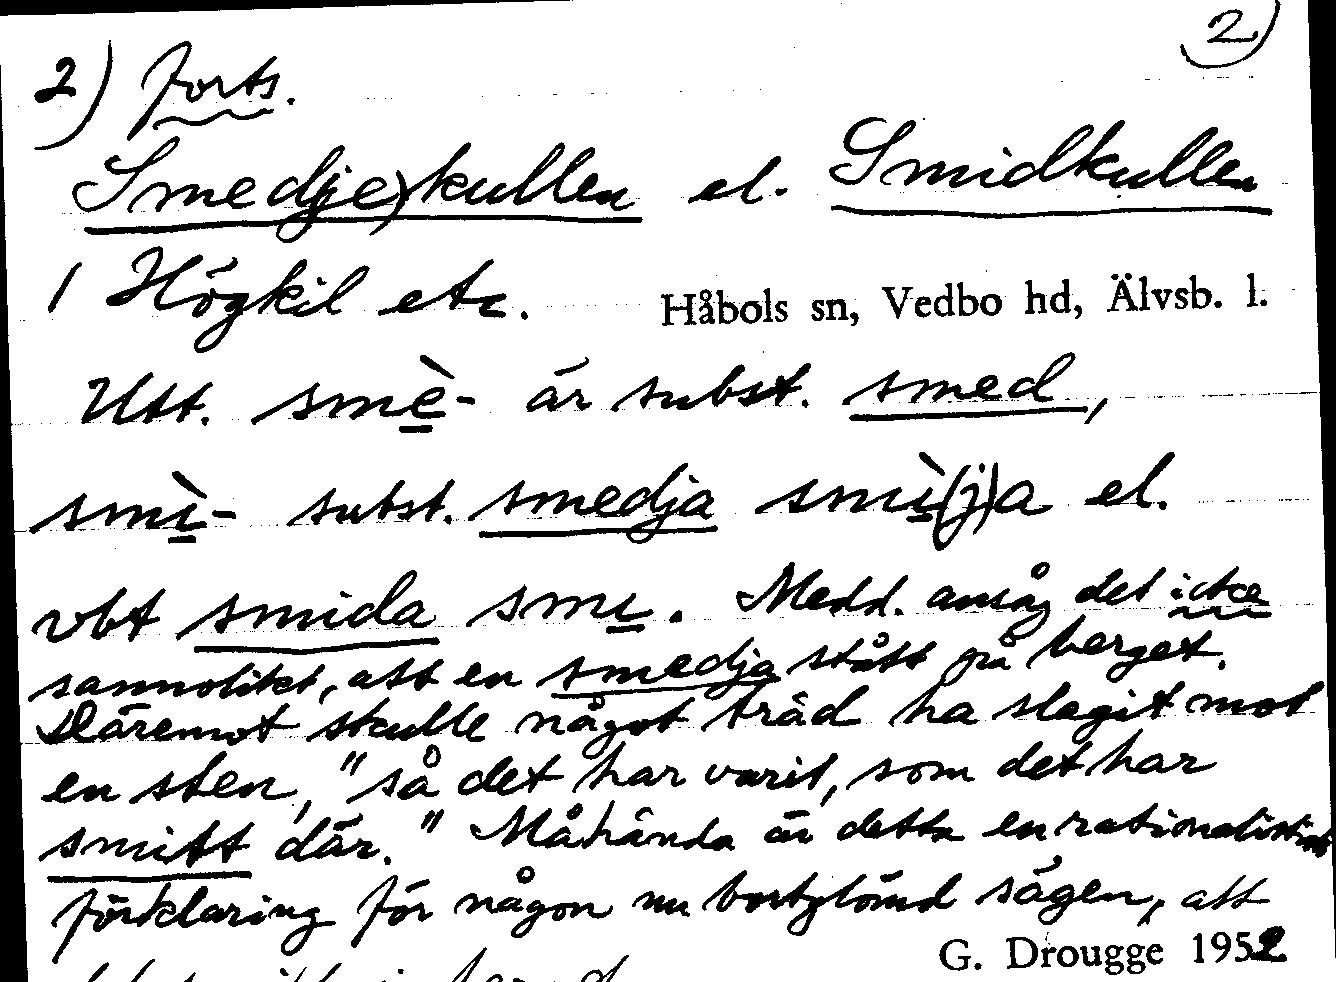 2)
2) forts.
Smedje)kullen el. Smidkullen
/ Högkil etc. Håbols sn, Vedbo hd, Älvsb. l.
Utt. smè- är subst. smed,
smì- subst. smedja smì(j)a el.
vbt smida smı. Medd. ansåg det icke
sannolikt, att en smedja stått på berget.
Däremot skulle något träd ha slagit mot
en sten, "så det har varit, som det har
smitt där." Måhända är detta en rationalistisk
förklaring för någon nu bortglömd sägen, att
G. Drougge 1952